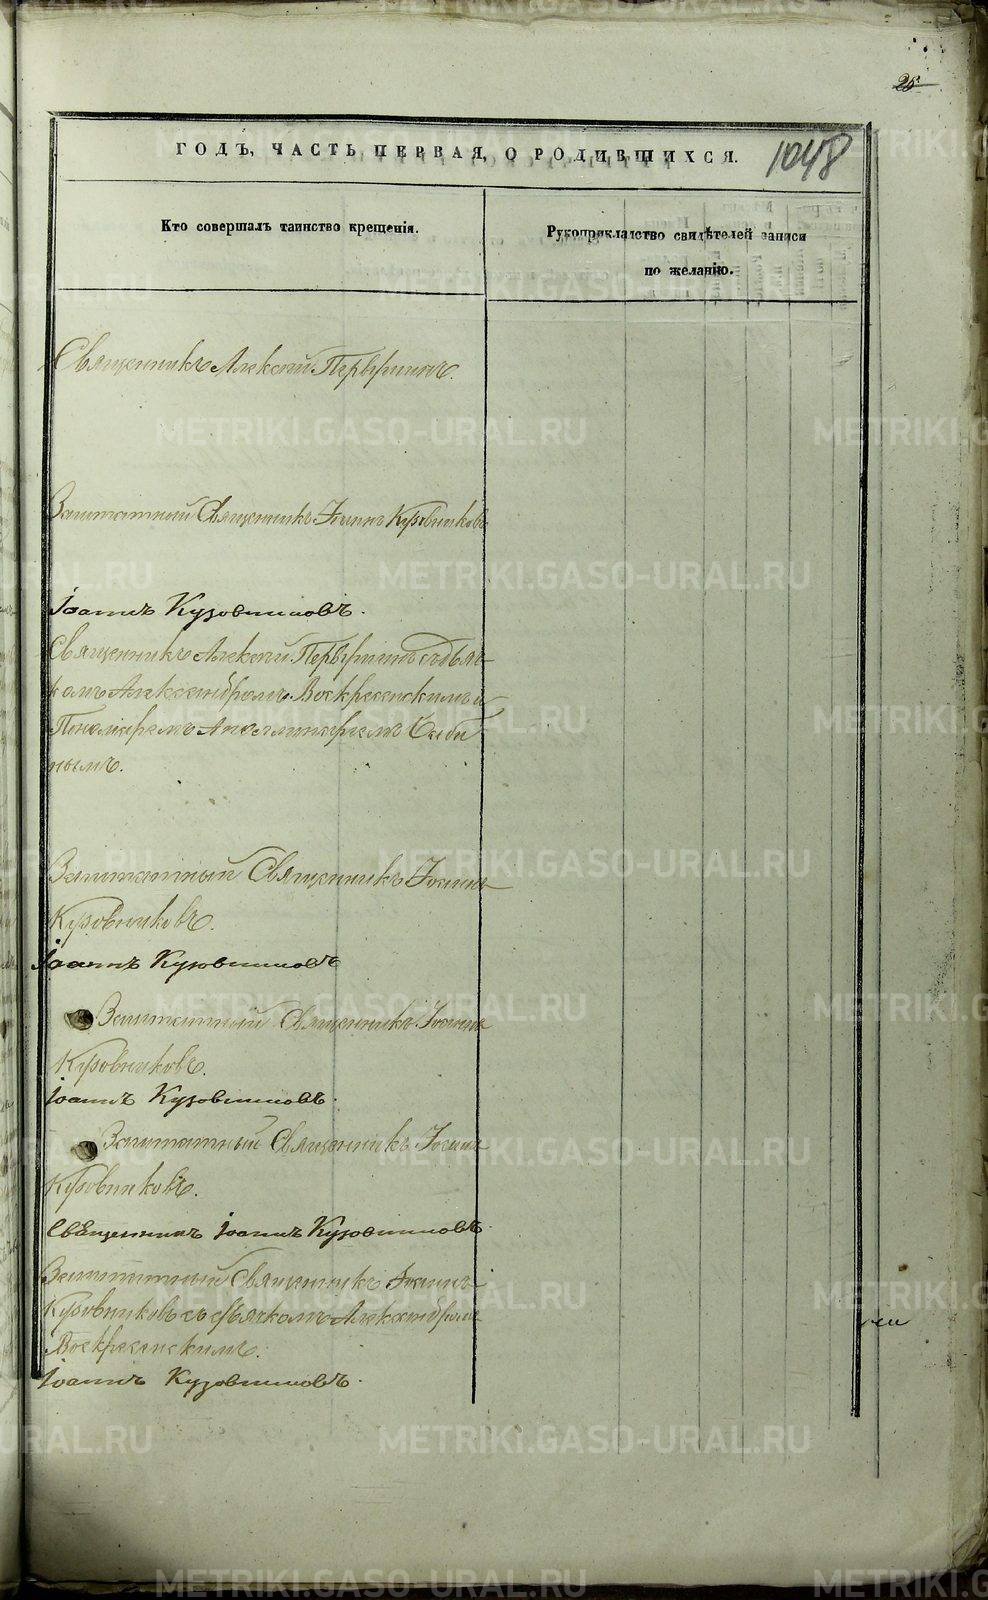 25
ГОДЪ, ЧАСТЬ ПЕРВАЯ, О РОДИВШИХСЯ.
1048
Кто совершалъ таинство крещенія.
Рукоприкладство свидѣтелей записи
по желанію.
Священникъ Алексій Первушинъ.
Заштатный Священникъ Іоаннъ Кузовниковъ
Іоаннъ Кузовниковъ.
Священникъ Алексій Первушинъ съ дьяч-
комъ Александромъ Воскресенскимъ и
Пономаремъ
нымъ.
Заштатный Священникъ Іоаннъ
Кузовниковъ.
Іоаннъ Кузовниковъ
Заштатный Священникъ Іоаннъ
Кузовниковъ.
Іоаннъ Кузовниковъ.
Заштатный Священникъ Іоаннъ
Кузовниковъ.
Священникъ Іоаннъ Кузовниковъ.
Заштатный Священникъ Іоаннъ
Кузовниковъ съ дьячкомъ Александромъ
Воскресенскимъ.
Іоаннъ Кузовниковъ.
METRIKI.GASO-URAL.RU